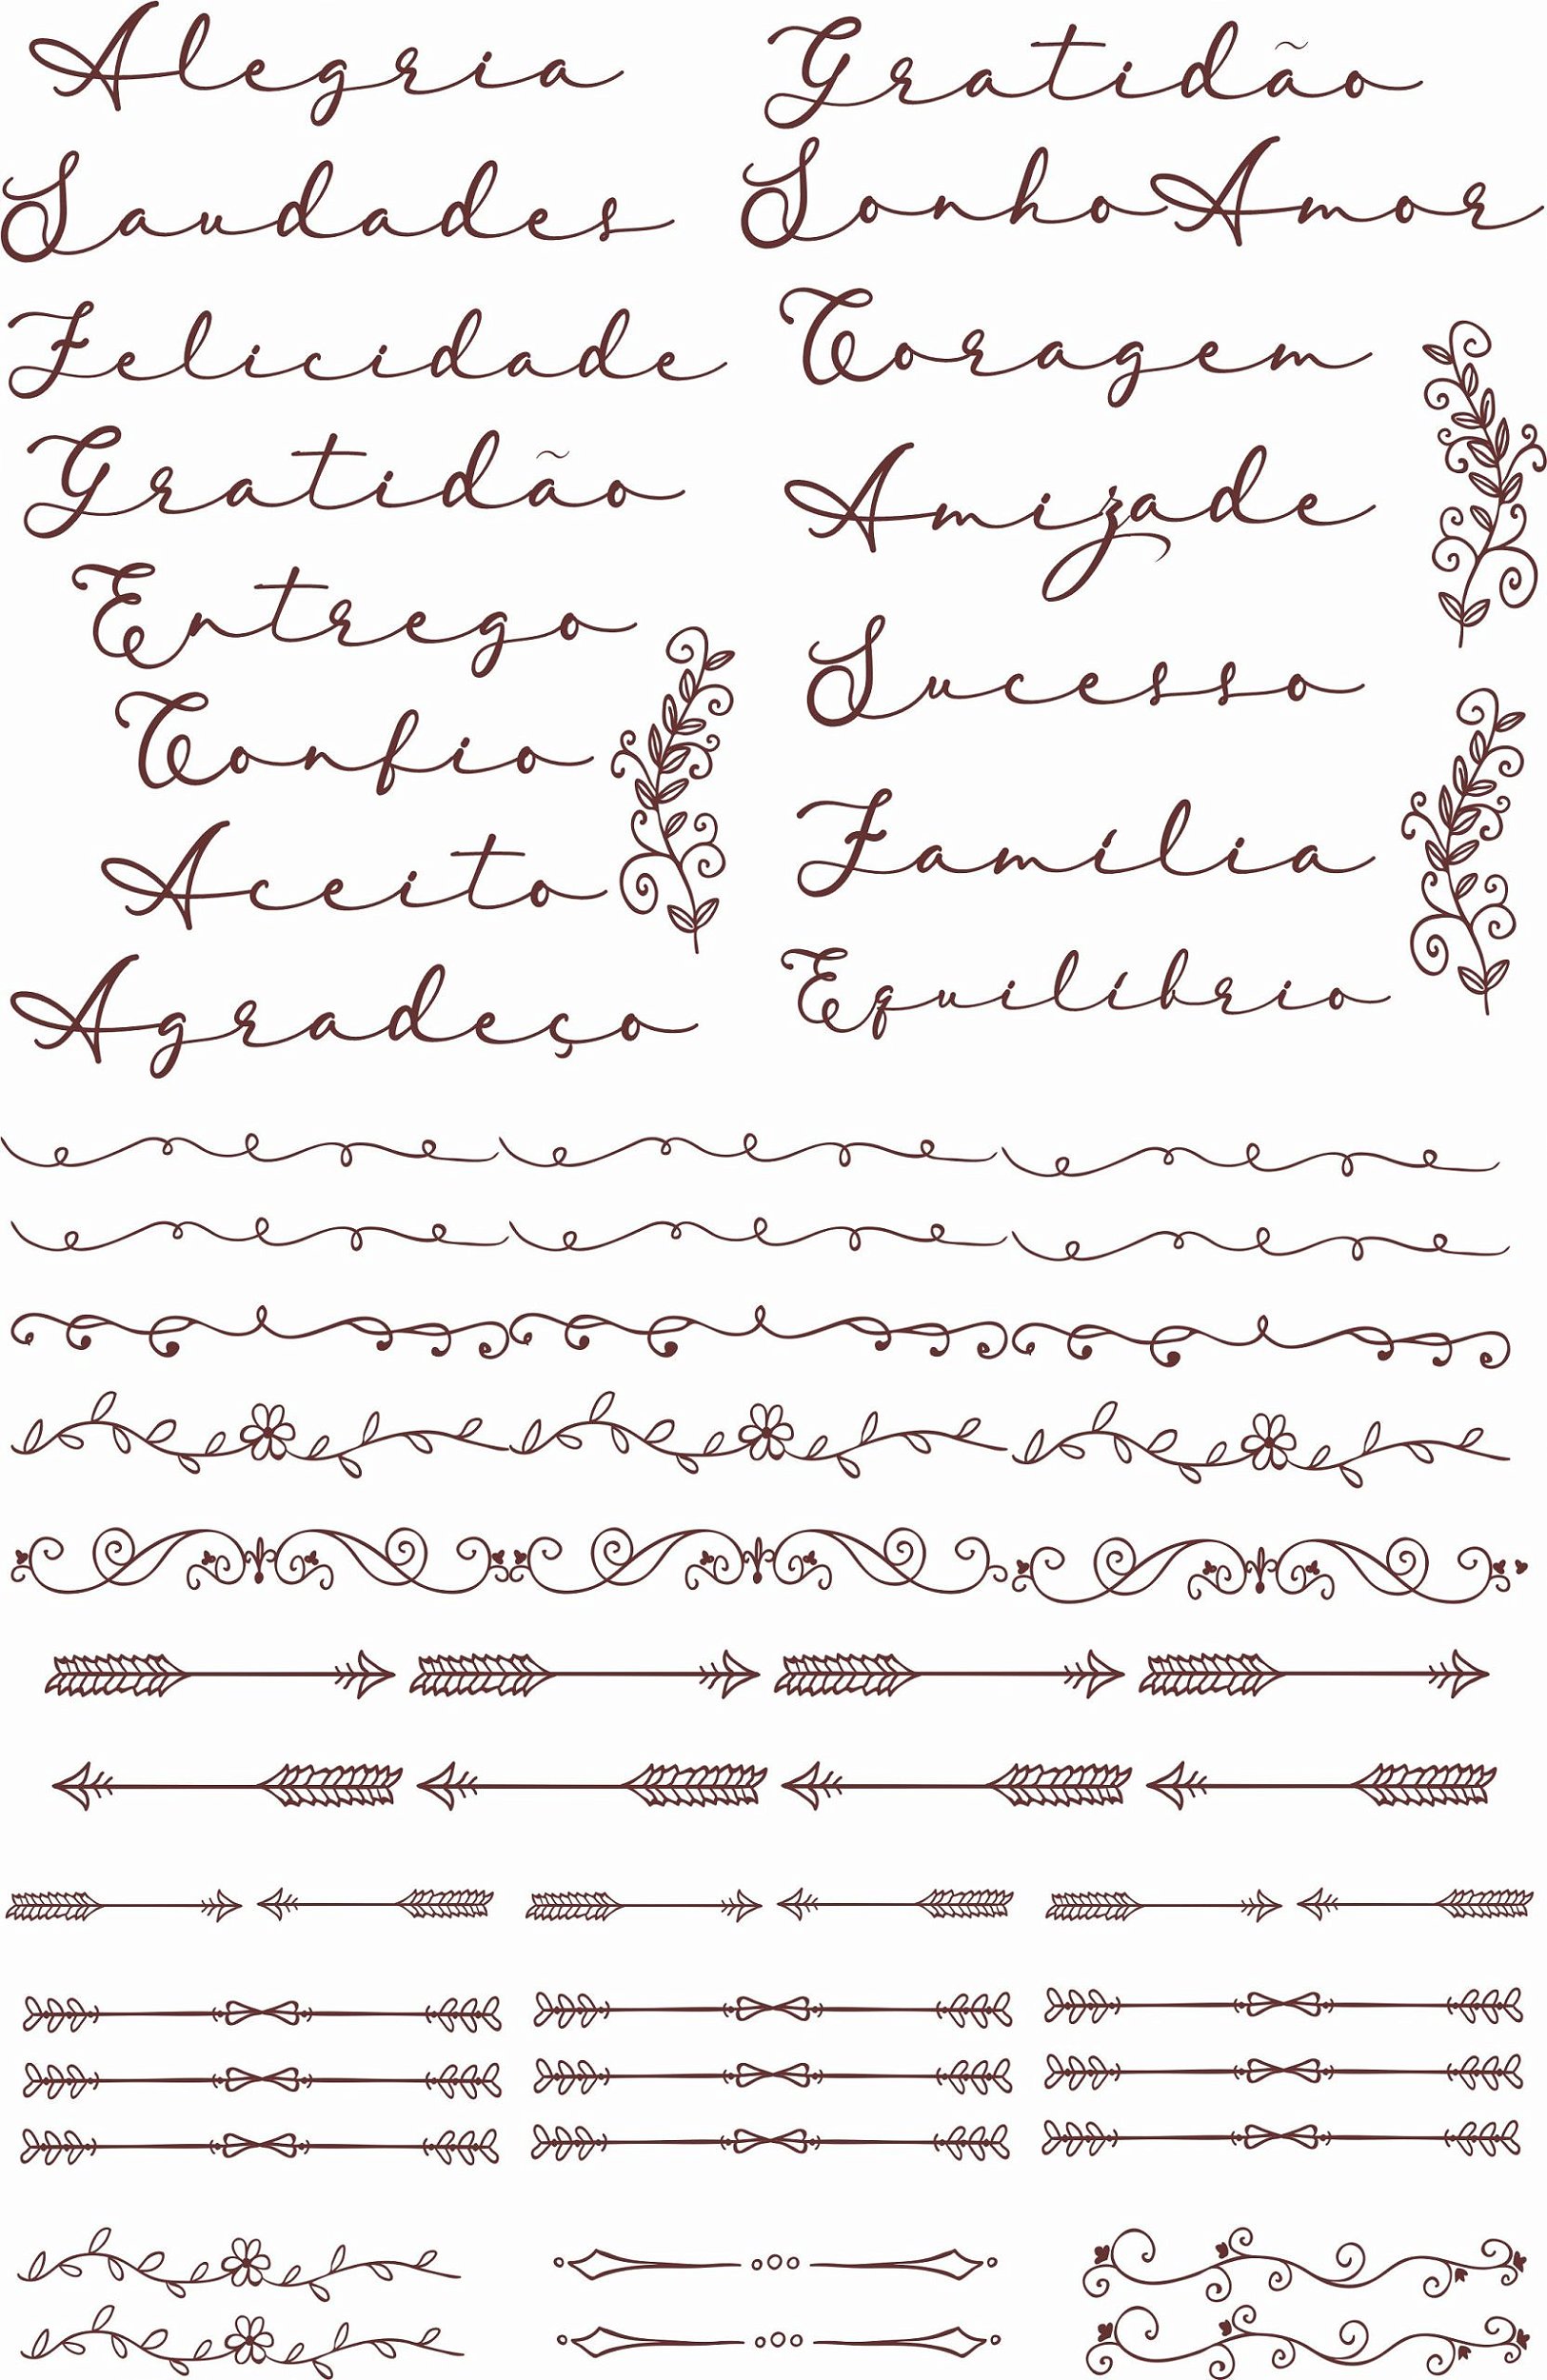 Alegria
Saudades
Felicidade
Gratidão
Entrego
Confio
Aceito
Agradeço
Gratidão
Sonho Amor
Coragem
Amizade
Sucesso
Família
Equilíbrio